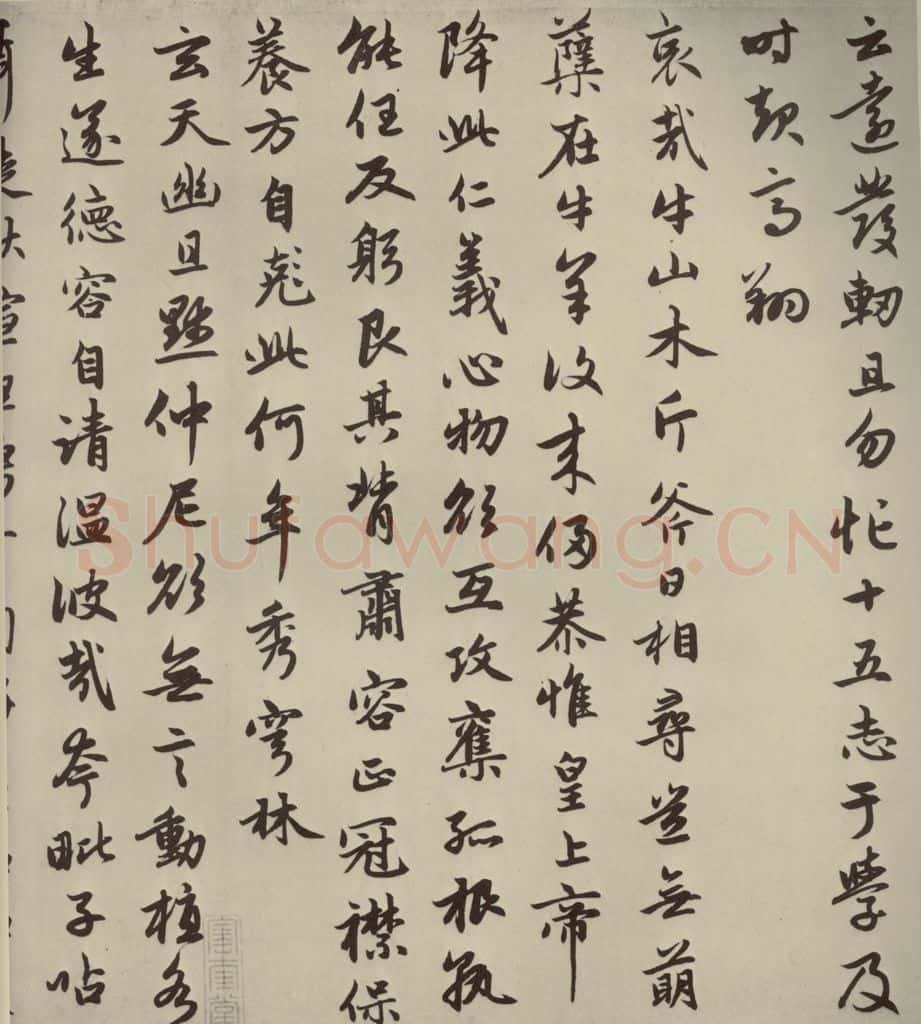 云遠發軔且勿忙十五志于學及
时起高翔
哀哉牛山木斤斧日相尋豈無萌
蘖在牛羊復来侵恭惟皇上帝
降此仁義心物欲互攻奪孤根孰
能任反躬艮其背肅容正冠襟保
養方自兹此何年秀穹林
玄天幽且默仲尼欲無言動植各
生遂德容自清温彼哉夸毗子呫
Shufawang.CN